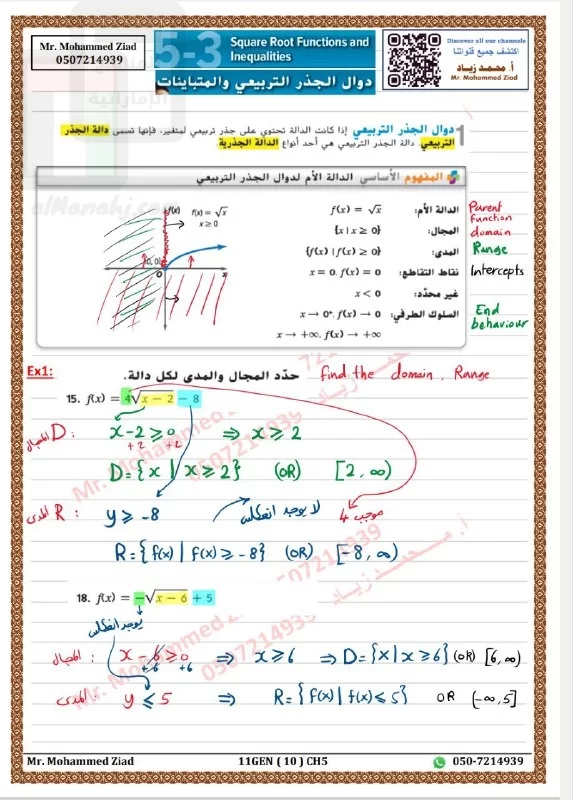 Mr. Mohammed Ziad
0507214939
5-3
Square Root Functions and
Inequalities
دوال الجذر التربيعي والمتباينات
Discover all our channels
اكتشف جميع قنواتنا
أ. محمد زياد
Mr. Mohammed Ziad
الإماراتية
almanahj.com
1 دوال الجذر التربيعي إذا كانت الدالة تحتوي على جذر تربيعي لمتغير، فإنها تسمى دالة الجذر
التربيعي. دالة الجذر التربيعي هي أحد أنواع الدالة الجذرية.
المفهوم الأساسي الدالة الأم لدوال الجذر التربيعي
f(x)
f(x) = √x
x ≥ 0
(0, 0)
x
الدالة الأم: f(x) = √x Parent Function
المجال: {x | x ≥ 0} domain
المدى: {f(x) | f(x) ≥ 0} Range
نقاط التقاطع: x = 0, f(x) = 0 Intercepts
غير محدّد: x < 0
السلوك الطرفي: x → 0⁺, f(x) → 0 End behaviour
x → +∞, f(x) → +∞
Ex1: حدّد المجال والمدى لكل دالة. find the domain, Range
15. f(x) = 4√(x − 2) − 8
المجال D: x-2 ≥ 0 ⇒ x ≥ 2
+2 +2
D = {x | x ≥ 2} (OR) [2, ∞)
المدى R: y ≥ -8 لا يوجد انعكاس موجب 4
R = {f(x) | f(x) ≥ -8} (OR) [-8, ∞)
18. f(x) = −√(x − 6) + 5
يوجد انعكاس
المجال: x - 6 ≥ 0 ⇒ x ≥ 6 ⇒ D = {x | x ≥ 6} (OR) [6, ∞)
+6 +6
المدى: y ≤ 5 ⇒ R = {f(x) | f(x) ≤ 5} OR (-∞, 5]
Mr. Mohammed Ziad
0507214939
أ. محمد زياد
Mr. Mohammed Ziad
0507214939
Mr. Mohammed Ziad 11GEN ( 10 ) CH5 050-7214939